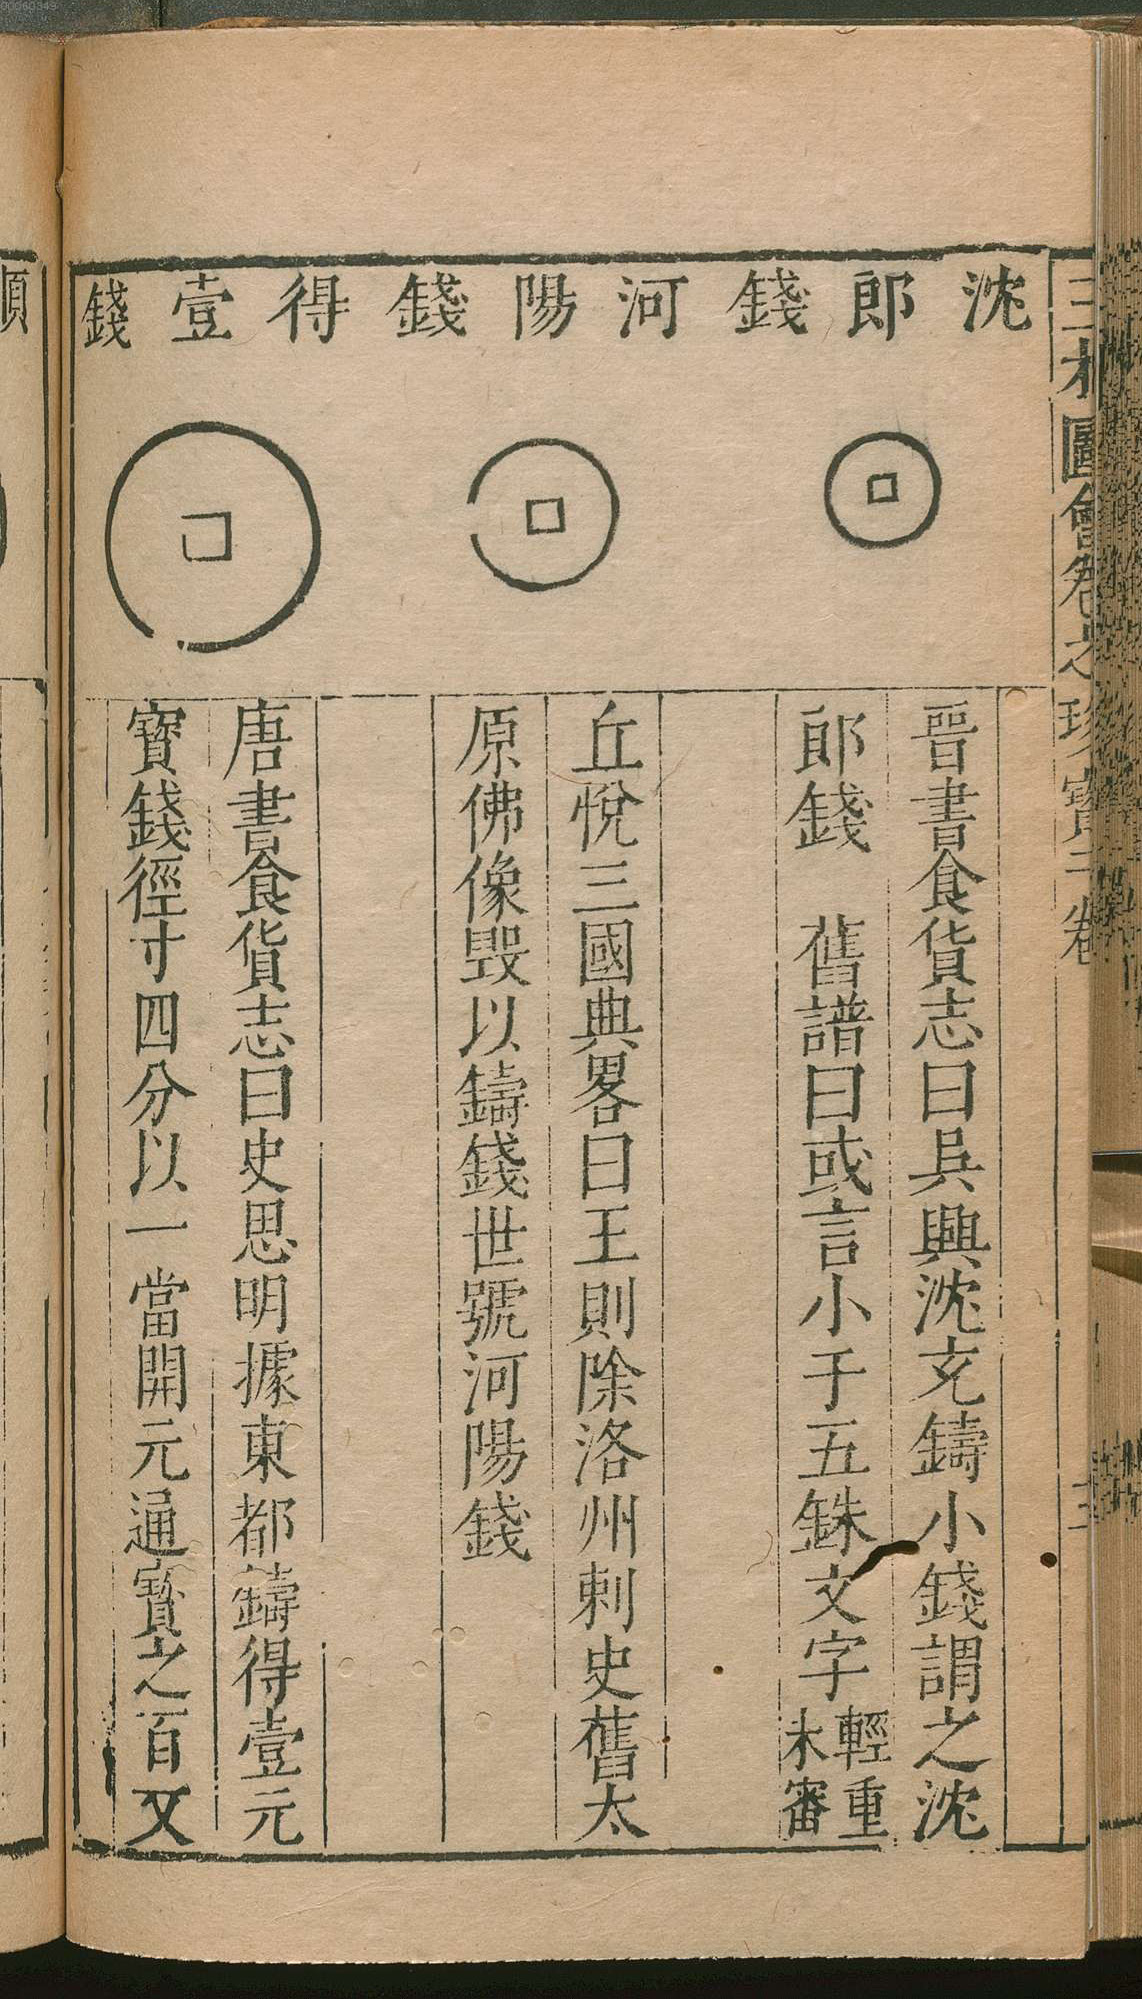 00060349
三才圖會卷之珍寶二卷
沈郎錢
河陽錢
得壹錢
晉書食貨志曰吳興沈充鑄小錢謂之沈
郎錢　舊譜曰或言小于五銖文字輕重未審
丘悅三國典畧曰王則除洛州刺史舊太
原佛像毀以鑄錢世號河陽錢
唐書食貨志曰史思明據東都鑄得壹元
寶錢徑寸四分以一當開元通寳之百又
順